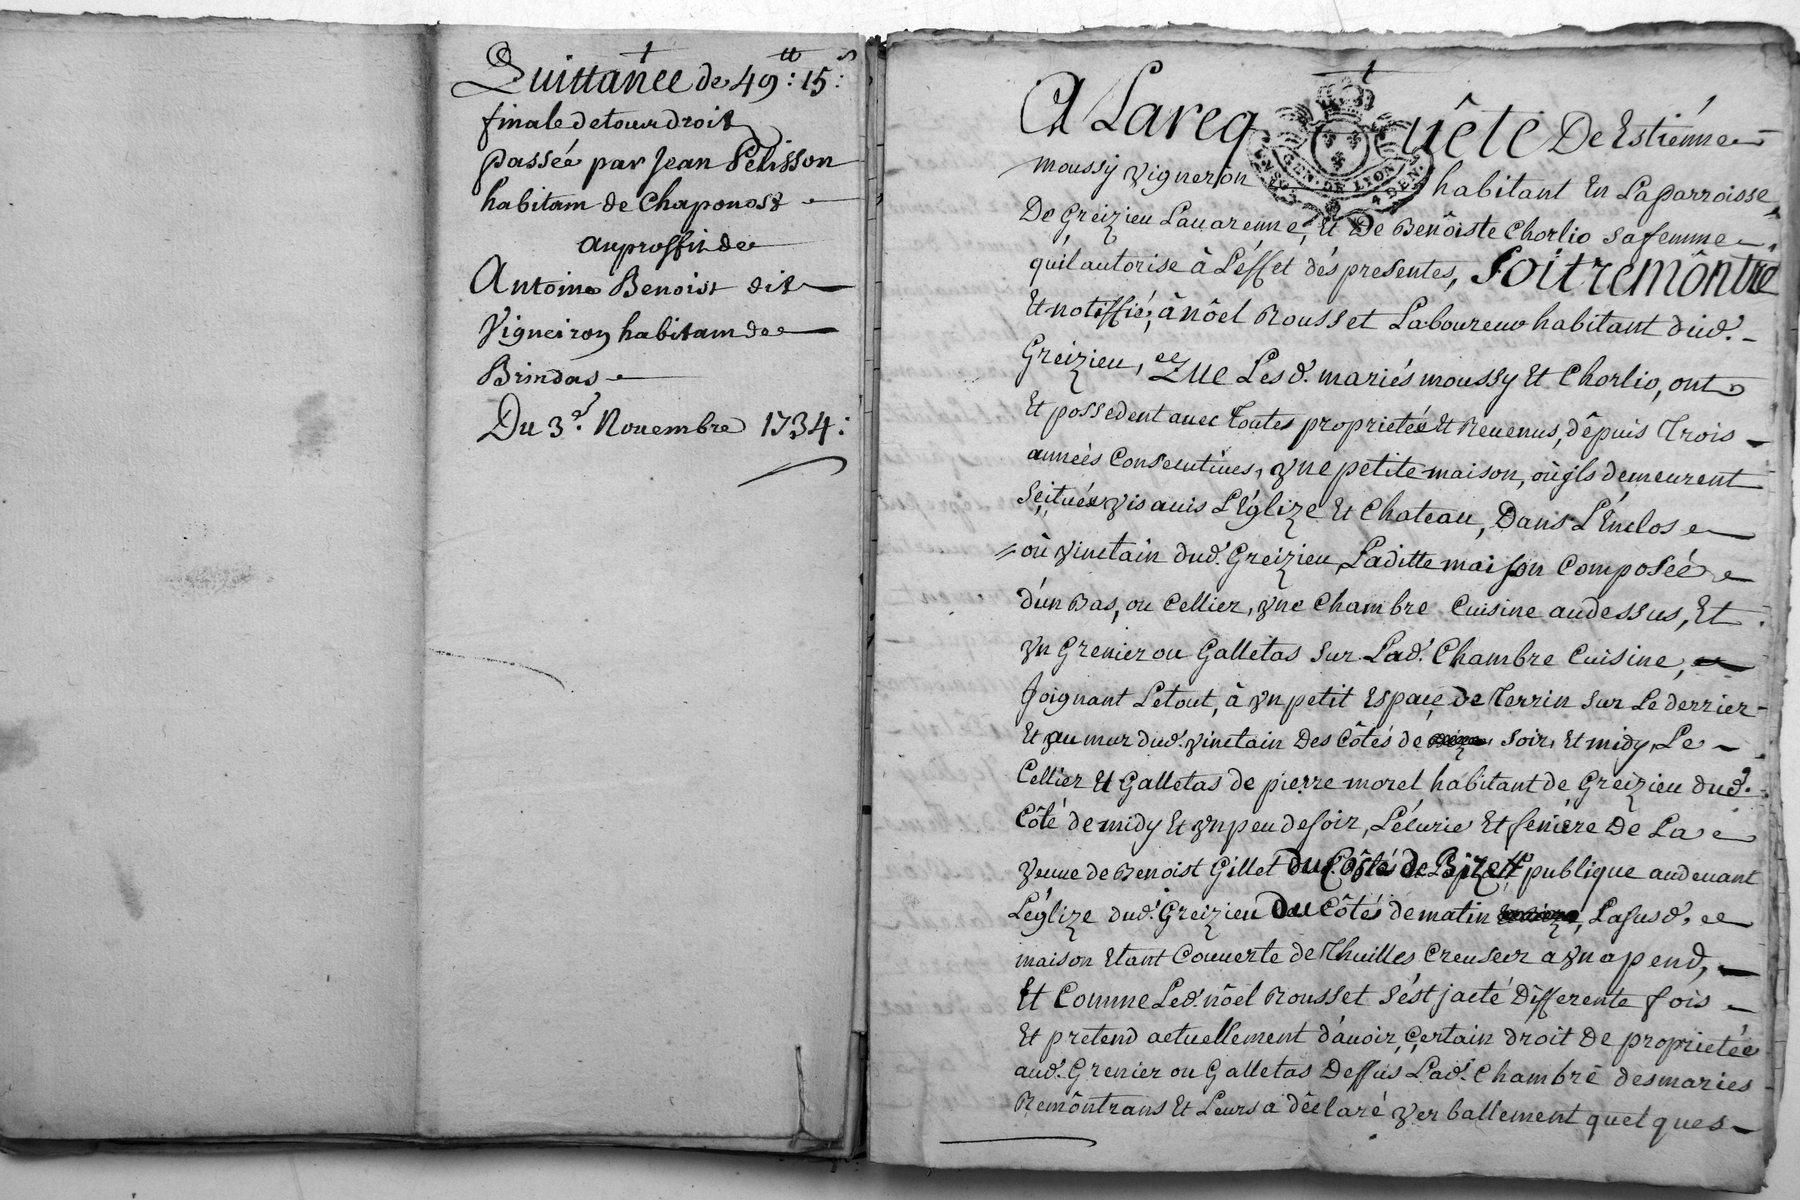 Quittance de 49tt: 15s:
finale de tour droit
passée par Jean Pelisson
habitam de Chaponost
au proffit de
Antoine Benoist dit
Vigneiron habitam de
Brindas
Du 3e. Nouembre 1734:
A La req uête De Estiénne
moussy vigneron habitant En La parroisse
De Greizieu Lauarenne, Et De Benôiste Chorlio sa femme
qu'il autorise â L'éffet dés presentes, Soit remôntré
Et notiffié, â nôel Rousset Laboureur habitant dud.
Greizieu, Que Les d. mariés moussy Et Chorlio, ont
Et possedent auec Toutes proprietés Et Reuenus, dêpuis Trois
années Consecutiues, vne petite maison, où ils demeurent
Scituée vis auis L'Églize Et Chateau, Dans L'Enclos
où vinctain dud. Greizieu, Laditte maison Composée
d'un Bas, ou Cellier, vne Chambre Cuisine au dessus, Et
vn Grenier ou Galletas Sur Lad. Chambre Cuisine,
Joignant Le tout, à vn petit Espace de Terrin Sur Le derrier
Et au mur dud. vinctain Des Côtés de soir, Et midy, Le
Cellier Et Galletas de pierre morel habitant de Greizieu dud.
Côté de midy Et vn peu de soir, L'écurie Et feniére De La
veuue de Benoist Gillet du Côstés de Bize Et publique au deuant
L'églize dud. Greizieu Du Côtés de matin, La susd.
maison Etant Couuerte de Thuilles Creuses a vn apend,
Et Comme Led. nôel Rousset s'ést jacté Différente fois
Et pretend actuellement d'auoir, Certain droit De proprietée
aud. Grenier ou Galletas Dessus Lad. Chambre des maries
Remôntrans Et Leurs a dêclaré verballement quelques